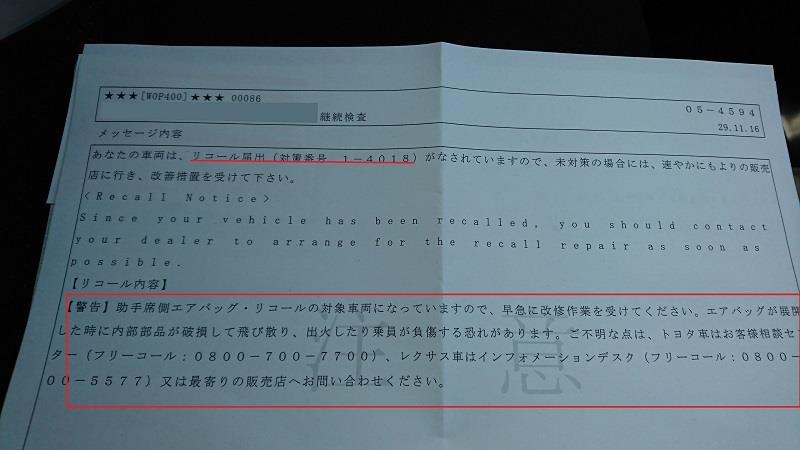 ★★★[WOP400]★★★ 00086
継続検査
05-4594
29.11.16
メッセージ内容
あなたの車両は、リコール届出（対策番号 1-4018）がなされていますので、未対策の場合には、速やかにもよりの販売
店に行き、改善措置を受けて下さい。
<Recall Notice>
Since your vehicle has been recalled, you should contact
your dealer to arrange for the recall repair as soon as
possible.
【リコール内容】
【警告】助手席側エアバッグ・リコールの対象車両になっていますので、早急に改修作業を受けてください。エアバッグが展開
した時に内部部品が破損して飛び散り、出火したり乗員が負傷する恐れがあります。ご不明な点は、トヨタ車はお客様相談セ
ター（フリーコール：0800-700-7700）、レクサス車はインフォメーションデスク（フリーコール：0800-
00-5577）又は最寄りの販売店へお問い合わせください。
注意